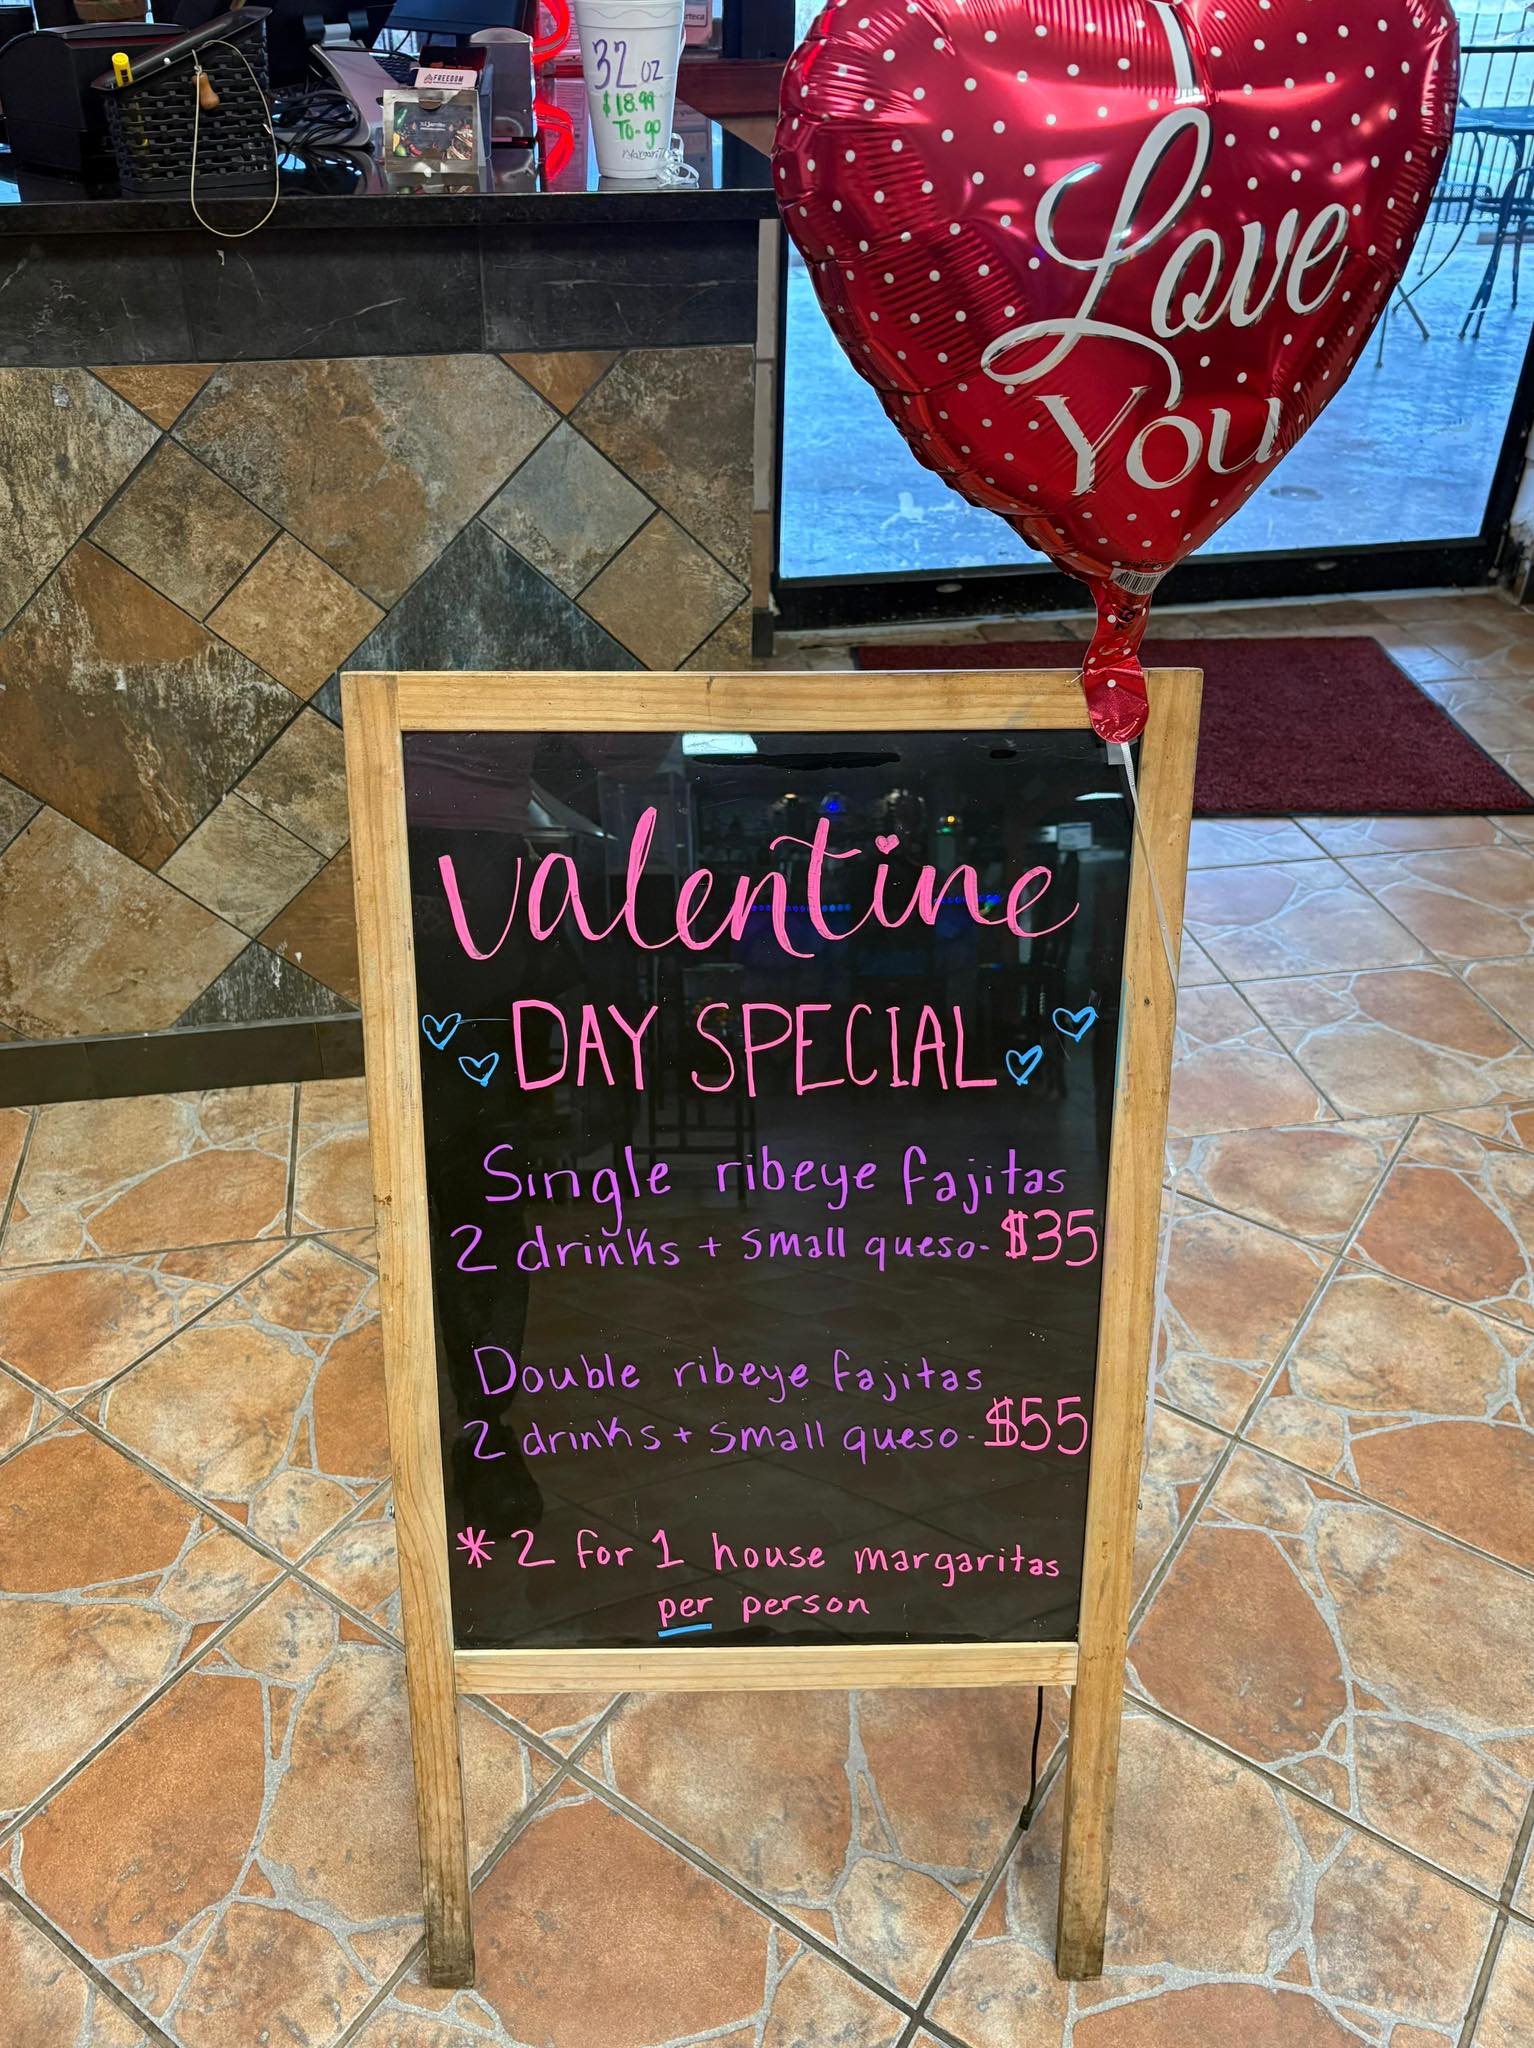 32 oz
$18.99
To-go
FREEDOM
I
Love
You
Valentine
DAY SPECIAL
Single ribeye fajitas
2 drinks + small queso - $35
Double ribeye fajitas
2 drinks + small queso - $55
* 2 for 1 house margaritas
per person